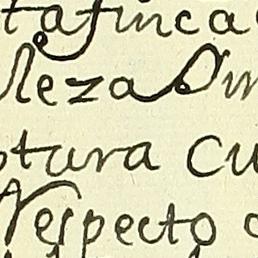 ta finca
leza Sin
tura cu
Respecto